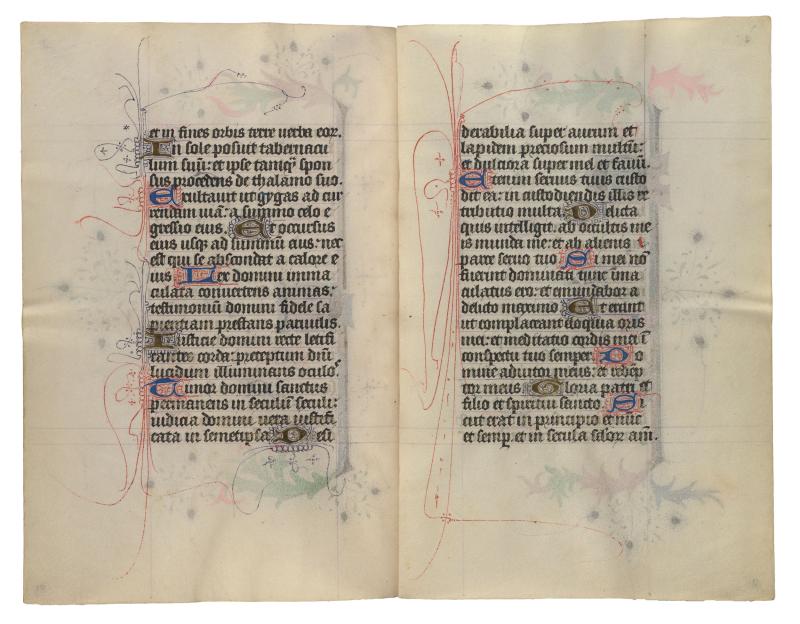 et in fines orbis terre uerba eoꝝ.
In sole posuit tabernacu
lum suū: et ipse tamq̄ spon
sus procedens de thalamo suo.
Exultauit ut gygas ad cur
rendam uiā: a summo celo e
gressio eius. Et occursus
eius usqꝫ ad summū eius: nec
est qui se abscondat a calore e
ius Lex domini imma
culata conuertens animas:
testimoniū domini fidele sa
pientiam prestans paruulis.
Iusticie domini recte letifi
cantes corda: preceptum dn̄i
lucidum illuminans oculos.
Timor domini sanctus
permanens in seculū seculi:
iudicia domini uera iustifi
cata in semetipsa Desi
derabilia super aurum et
lapidem preciosum multū:
et dulciora super mel et fauū.
Etenim seruus tuus custo
dit ea: in custodiendis illis re
tributio multa. Delicta
quis intelligit. ab occultis me
is munda me: et ab alienis
parce seruo tuo Si mei nō
fuerint dominati tunc īma
culatus ero: et emundabor a
delicto maximo Et erunt
ut complaceant eloquia oris
mei: et meditatio cordis mei ī
conspectu tuo semper. Do
mine adiutor meus: et redēp
tor meus Gloria patri et
filio et spiritui sancto. Si
cut erat in principio et nūc
et semp̄. et in secula sc̄lor am̄.